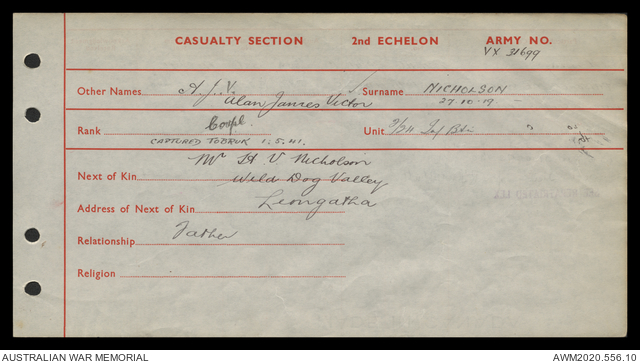 CASUALTY SECTION 2nd ECHELON ARMY NO.
VX 31699
Other Names A. J. V. Surname NICHOLSON
Alan James Victor 27-10-19 -
Rank Corpl Unit 2/24 Inf Btn
CAPTURED TOBRUK 1.5.41.
Mr H V Nicholson
Next of Kin Wild Dog Valley
Address of Next of Kin Leongatha
Relationship Father
Religion
AUSTRALIAN WAR MEMORIAL AWM2020.556.10